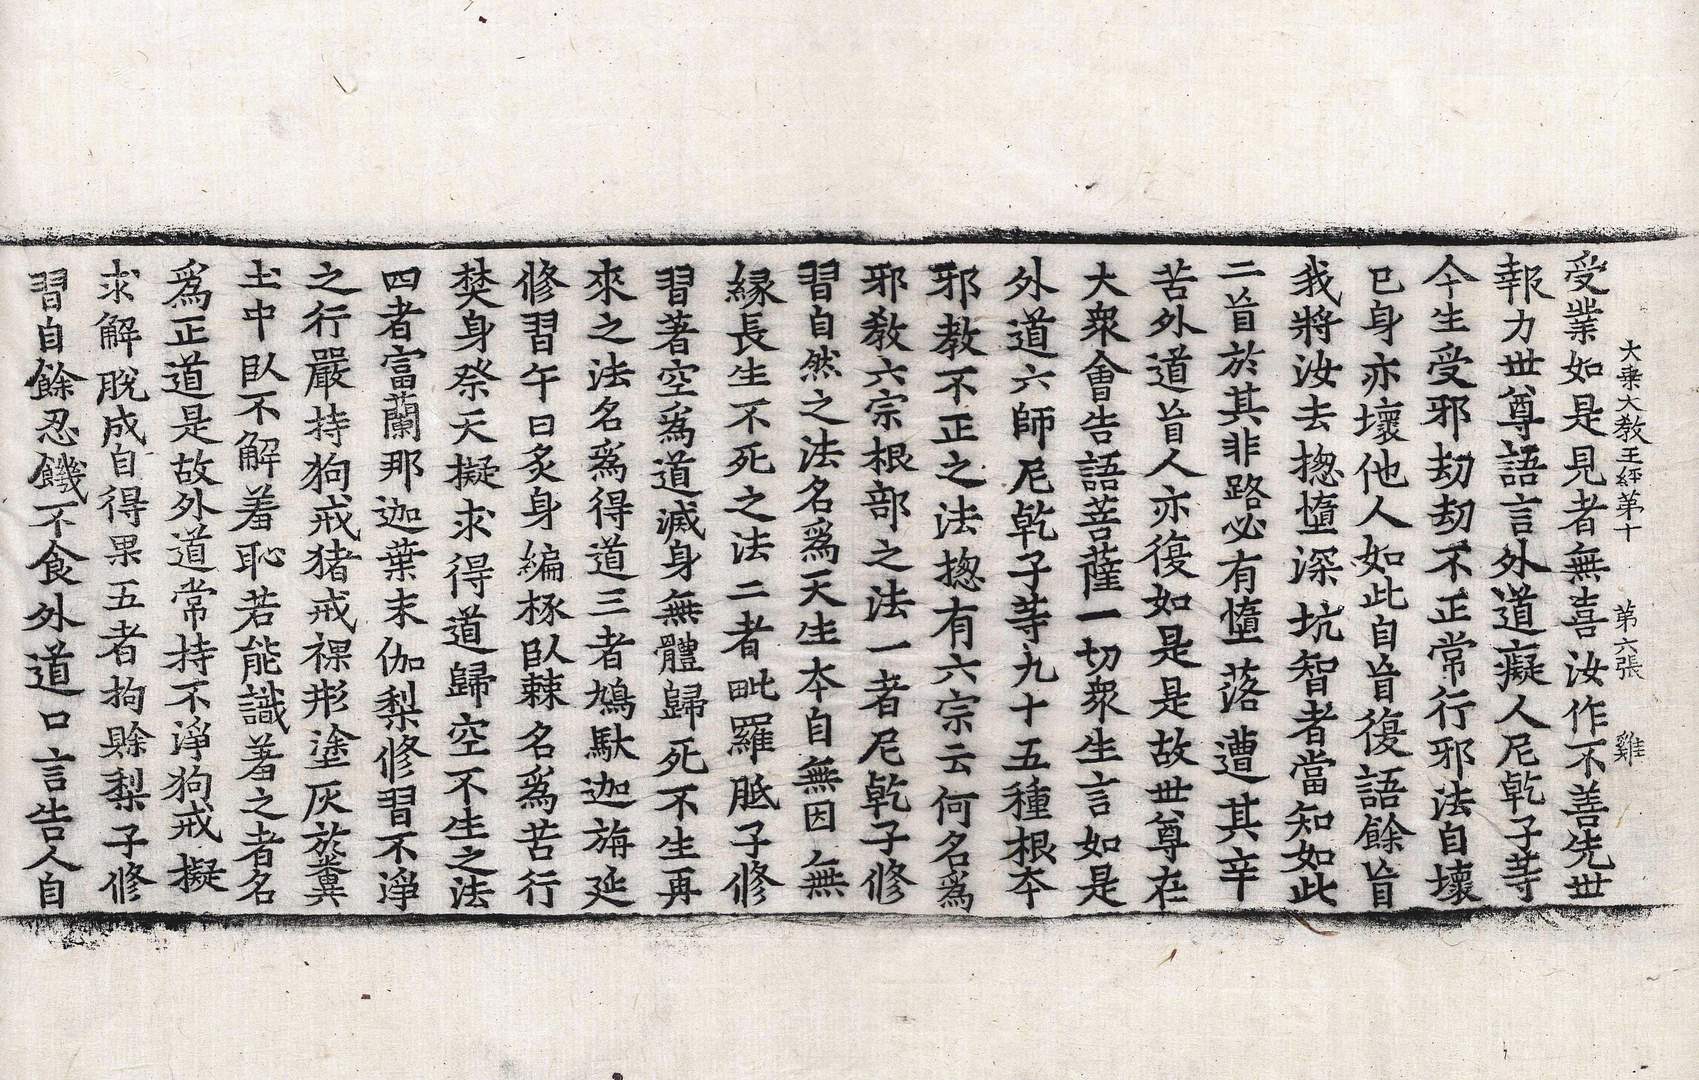 大乗大教王經第十　第六張　雞
受業如是見者無喜汝作不善先世
報力世尊語言外道癡人尼乾子等
今生受邪劫劫不正常行邪法自壞
已身亦壞他人如此自盲復語餘盲
我將汝去揔墮深坑智者當知如此
二盲於其非路必有墮落遭其辛
苦外道盲人亦復如是是故世尊在
大衆會告語菩薩一切衆生言如是
外道六師尼乾子等九十五種根夲
邪教不正之法揔有六宗云何名爲
邪教六宗根部之法一者尼乾子修
習自然之法名爲天生夲自無因無
緣長生不死之法二者毗羅胝子修
習著空爲道滅身無體歸死不生再
來之法名爲得道三者鳩馱迦旃延
修習午日炙身編椓臥棘名爲苦行
焚身祭天擬求得道歸空不生之法
四者富蘭那迦葉末伽梨修習不淨
之行嚴持狗戒猪戒裸形塗灰於糞
土中臥不解羞恥若能識羞之者名
爲正道是故外道常持不淨狗戒擬
求解脫成自得果五者拘賒梨子修
習自餘忍饑不食外道口言告人自